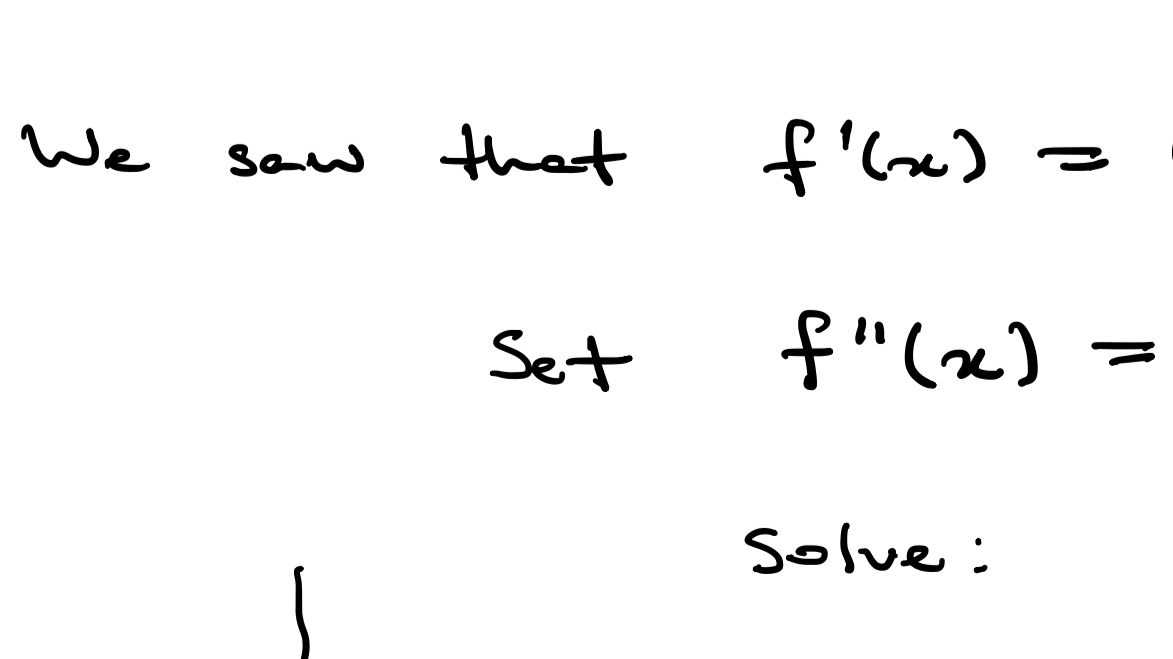 We saw that f'(x) =
Set f"(x) =
Solve: